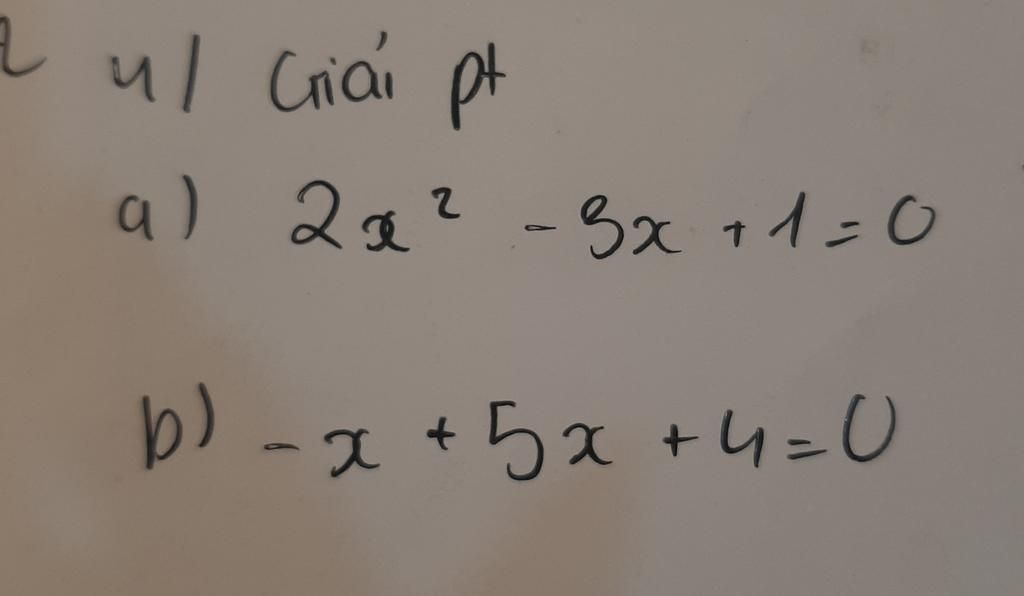 4/ Giải pt
a) 2x² - 3x + 1 = 0
b) - x + 5x + 4 = 0